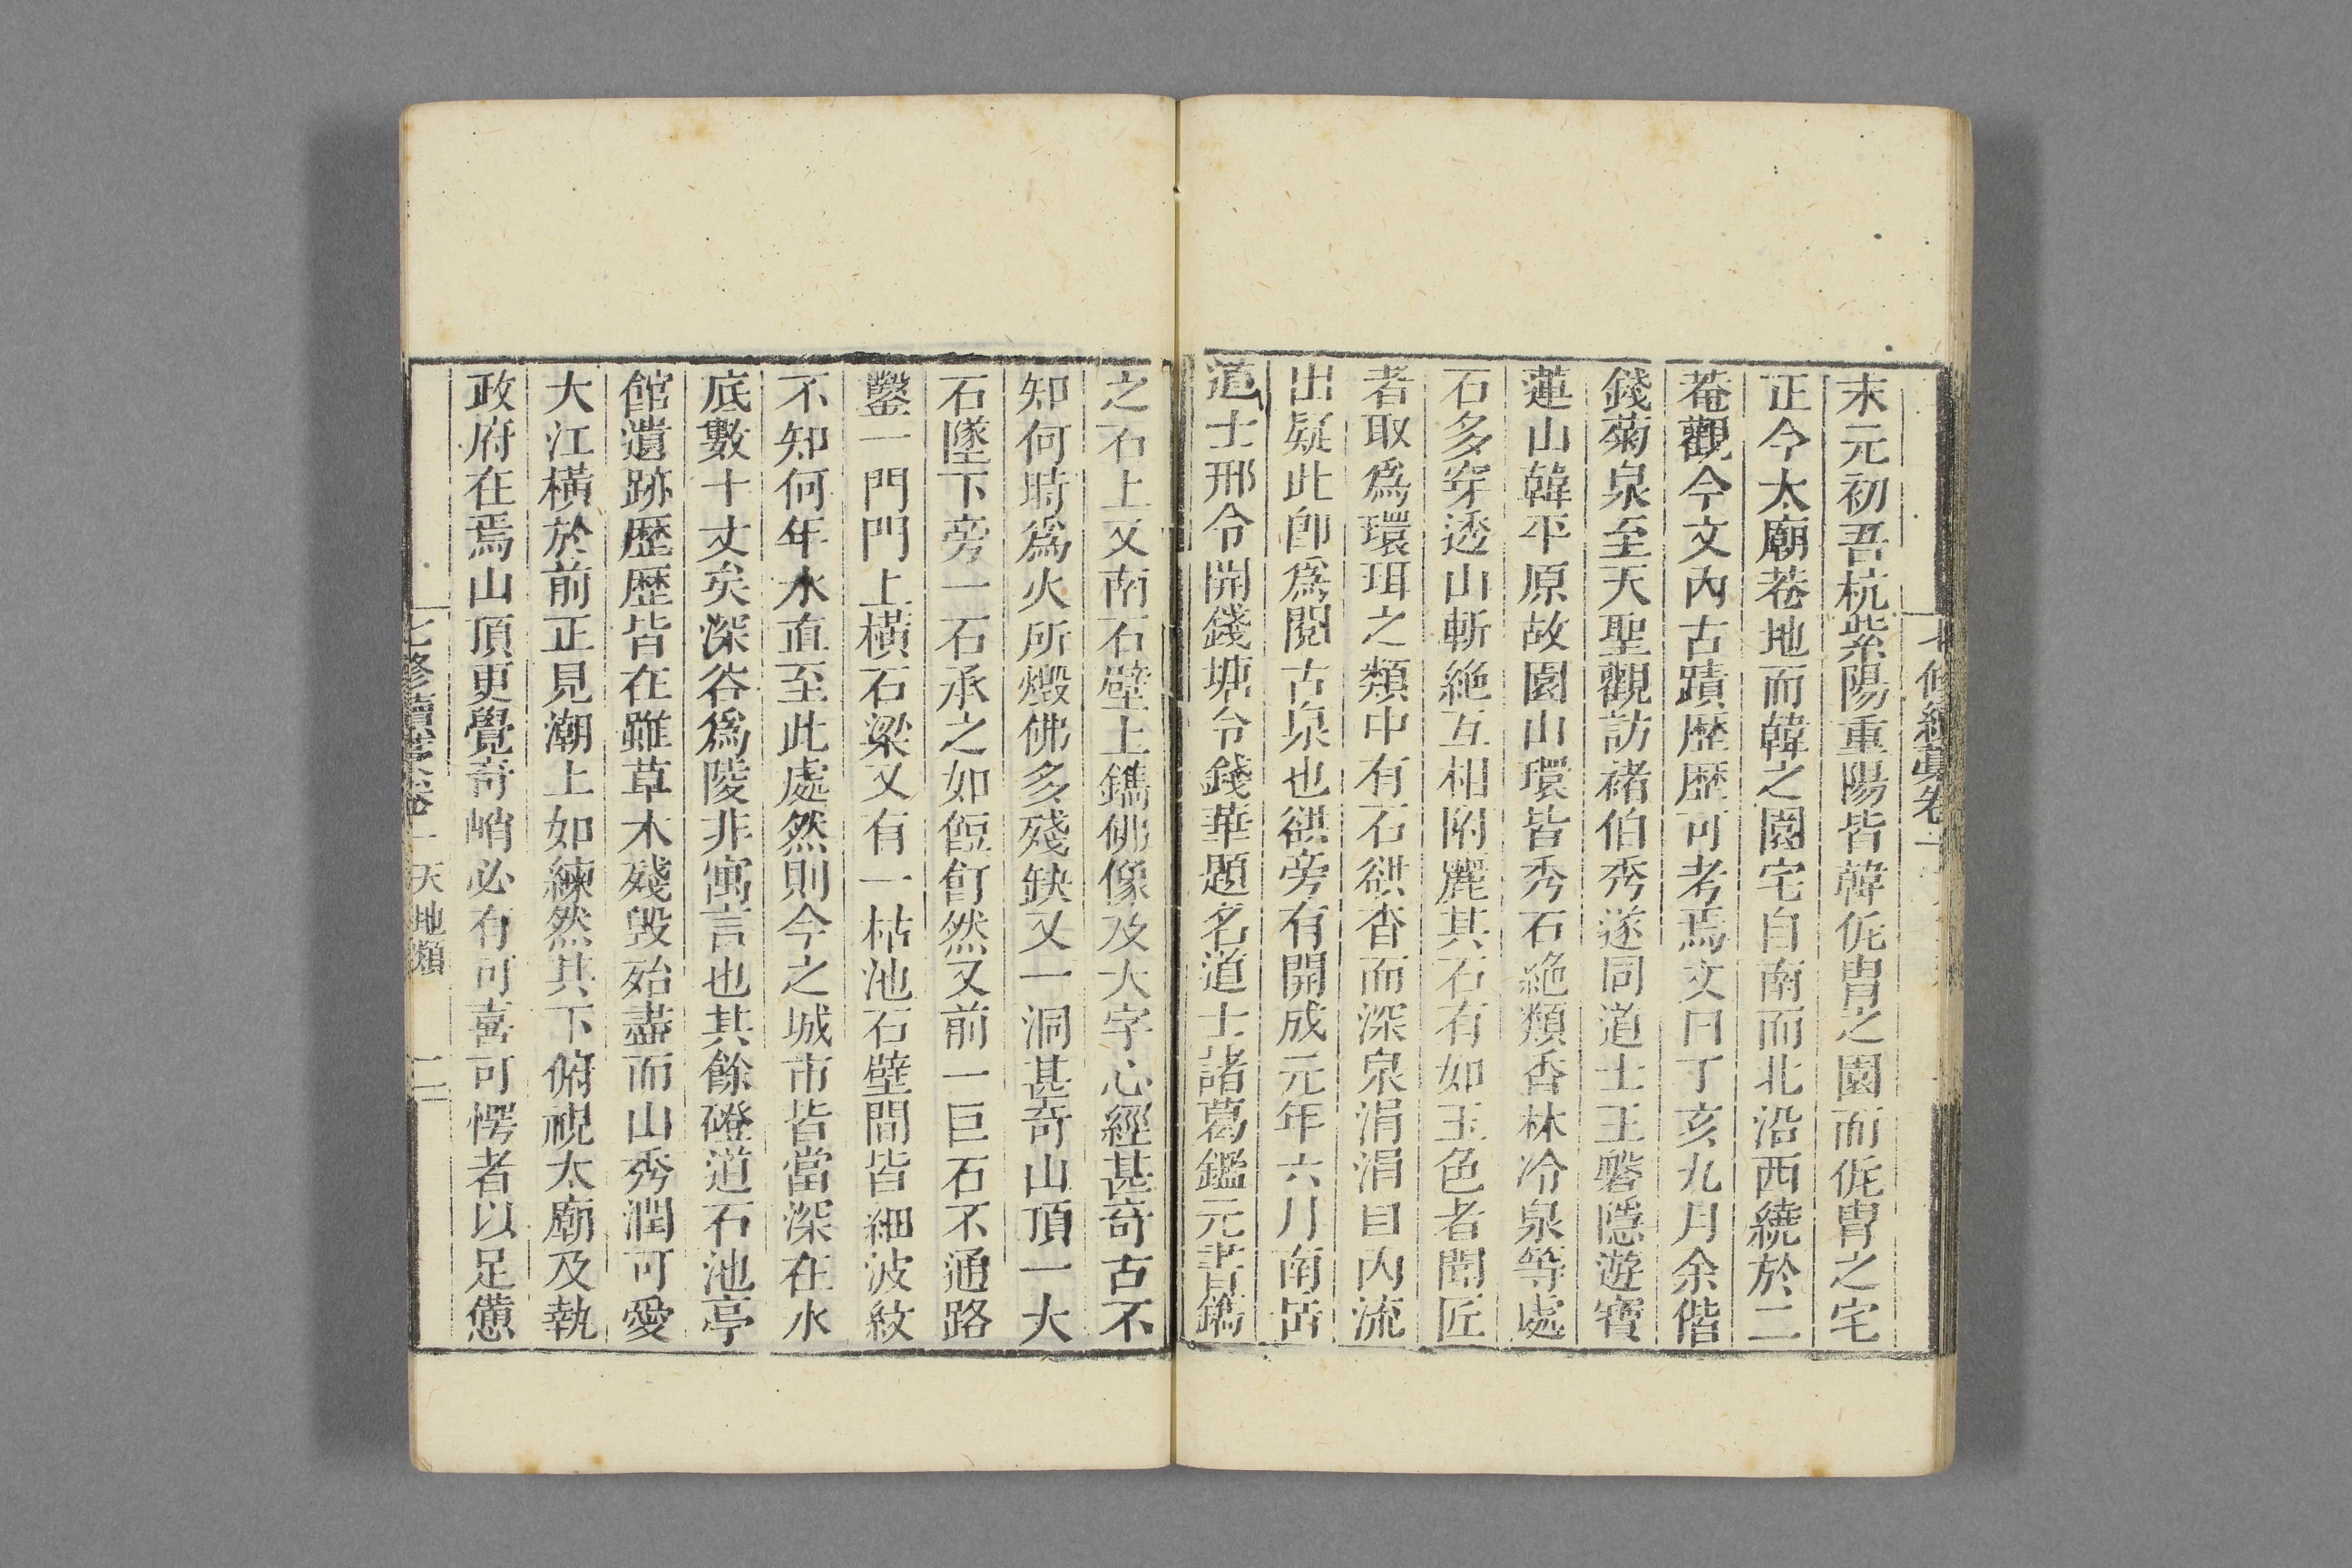 末元初吾杭紫陽重陽皆韓侂胄之園而侂胄之宅
正今太廟巷地而韓之園宅自南而北沿西繞於二
菴觀今文內古蹟歷歷可考焉文曰丁亥九月余偕
錢菊泉至天聖觀訪褚伯秀遂同道士王磐隱遊寶
蓮山韓平原故園山環皆秀石絶類香林冷泉等處
石多穿透山斬絶互相附麗其石有如玉色者聞匠
者取爲環珥之類中有石谼杳而深泉涓涓自內流
出疑此卽爲閱古泉也谼旁有開成元年六月南岳
道士邢令開錢塘令錢華題名道士諸葛鑑元書鐫
之石上又南石壁上鐫佛像及大字心經甚奇古不
知何時爲火所燬佛多殘缺又一洞甚奇山頂一大
石墜下旁一石承之如餖飣然又前一巨石不通路
鑿一門門上橫石梁又有一枯池石壁間皆細波紋
不知何年水直至此處然則今之城市皆當深在水
底數十丈矣深谷爲陵非寓言也其餘磴道石池亭
館遺跡歷歷皆在雖草木殘毀殆盡而山秀潤可愛
大江橫於前正見潮上如練然其下俯視太廟及執
政府在焉山頂更覺奇峭必有可喜可愕者以足憊
七修續藁卷一 天地類 二